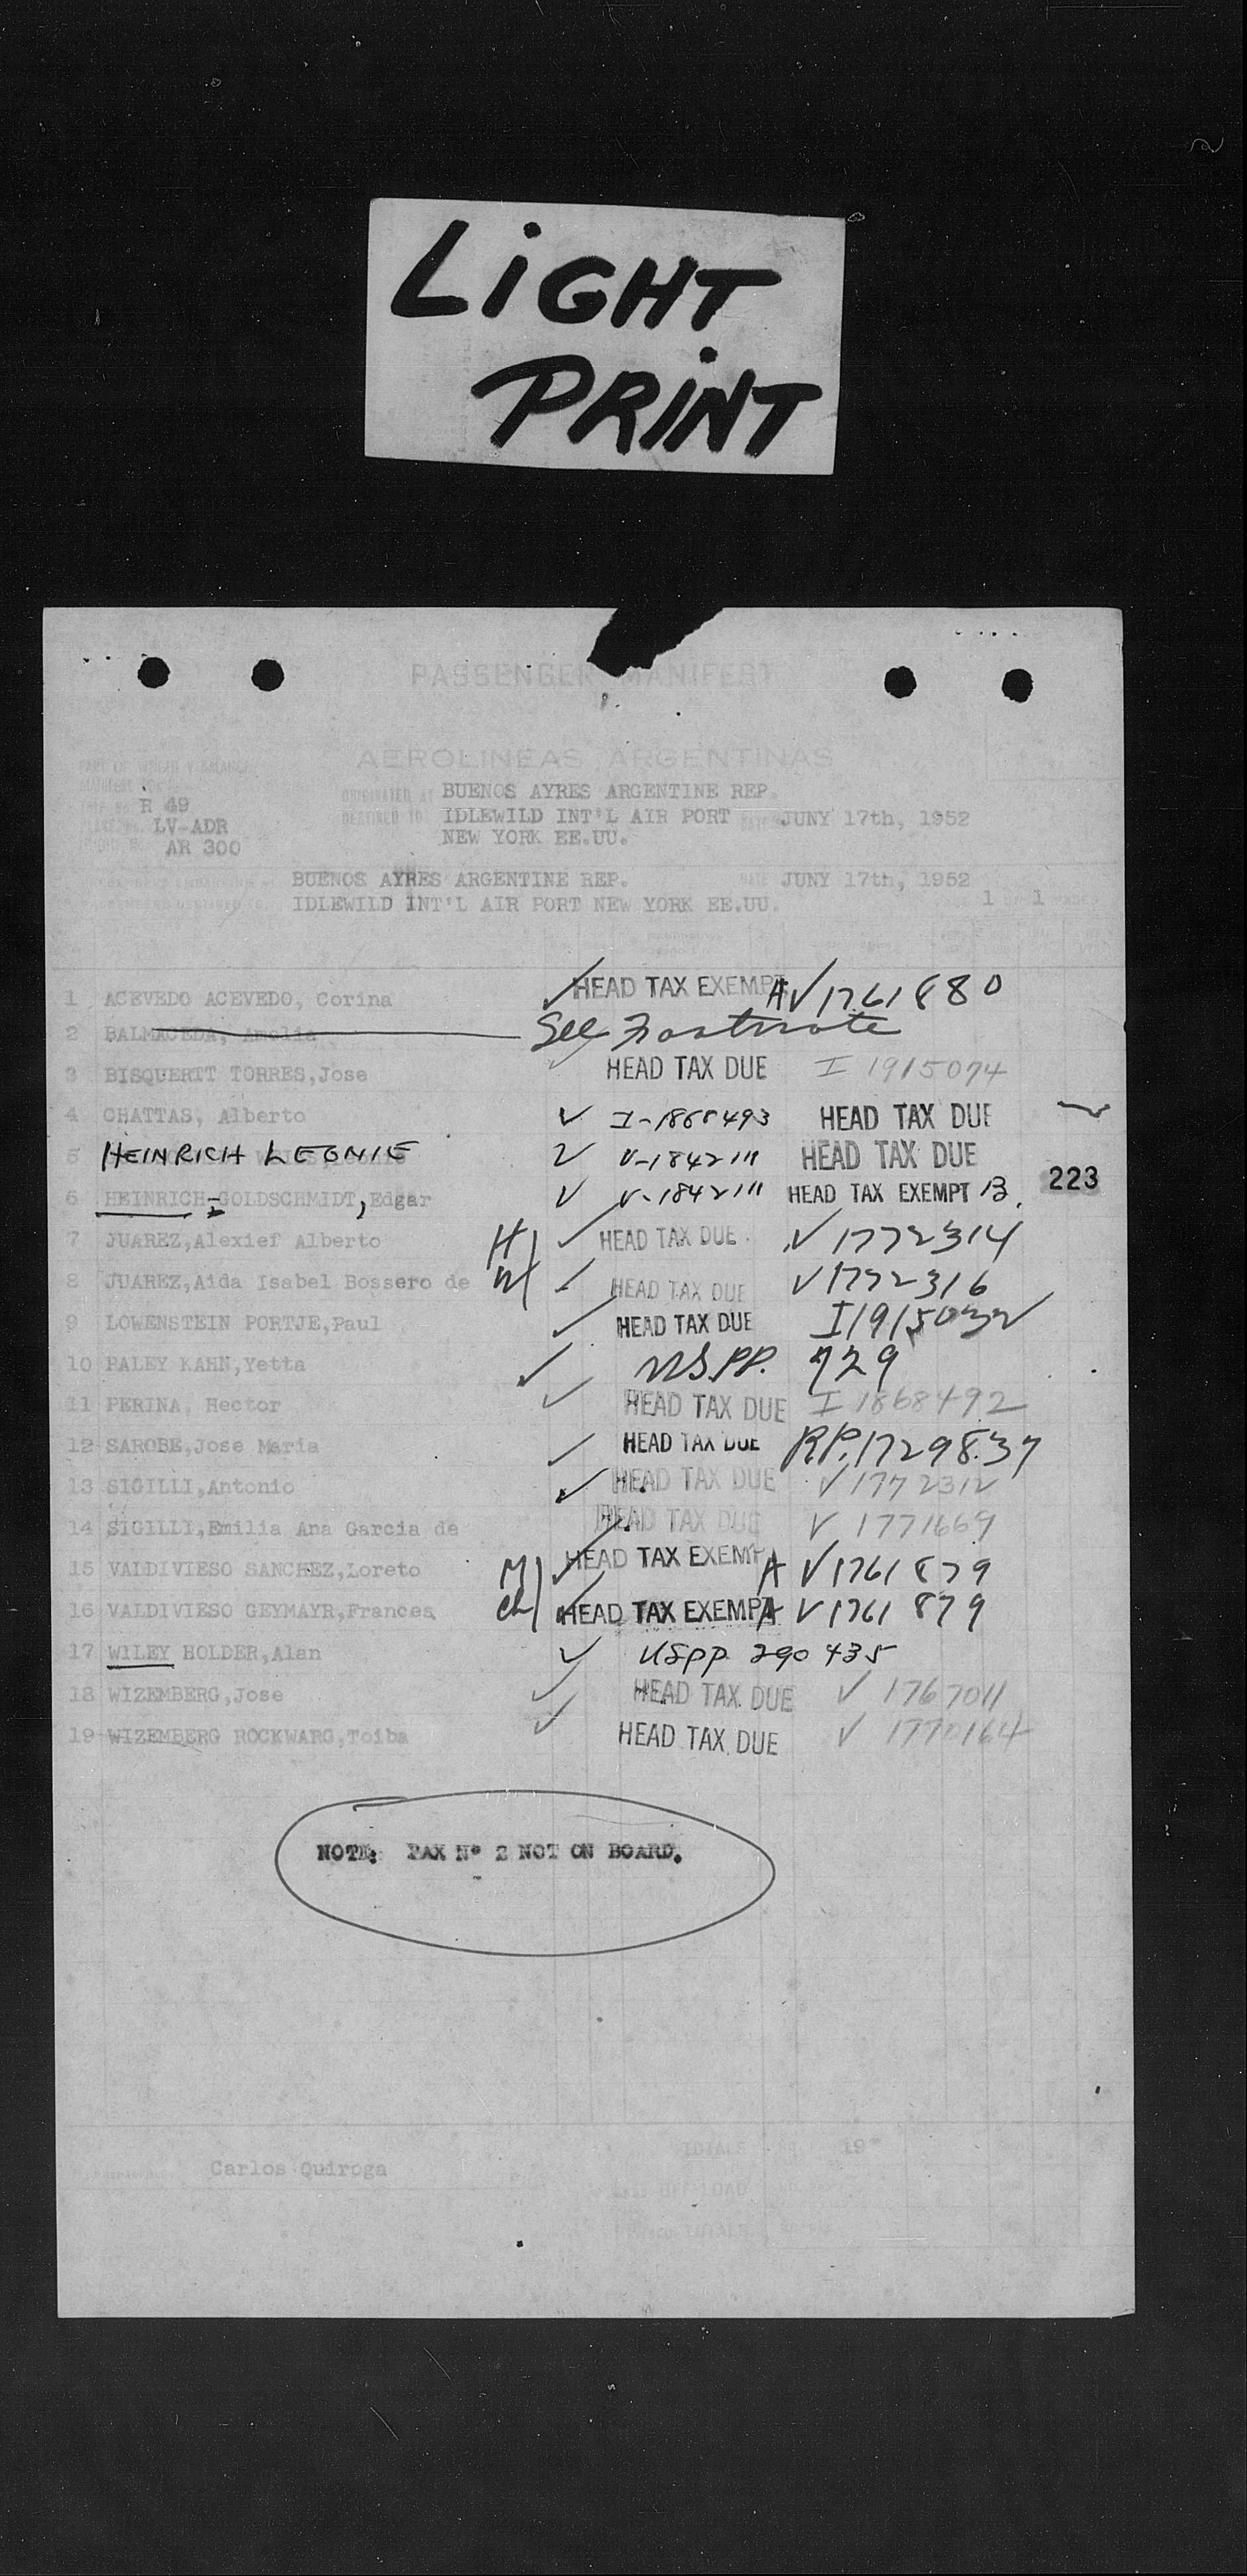 LiGHT
PRiNT
PASSENGER MANIFEST
AEROLINEAS ARGENTINAS
ORIGINATED AT BUENOS AYRES ARGENTINE REP.
R 49
DESTINED TO IDLEWILD INT'L AIR PORT DATE JUNY 17th, 1952
LV-ADR
NEW YORK EE.UU.
AR 300
BUENOS AYRES ARGENTINE REP. DATE JUNY 17th, 1952
IDLEWILD INT'L AIR PORT NEW YORK EE.UU. 1 OF 1 PAGES
1 ACEVEDO ACEVEDO, Corina HEAD TAX EXEMPT A V1761880
2 BALMACEDA, Amelia See Footnote
3 BISQUERTT TORRES,Jose HEAD TAX DUE I 1915074
4 CHATTAS, Alberto I-1868493 HEAD TAX DUE
5 HEINRICH LEONIE V-1842111 HEAD TAX DUE
6 HEINRICH-GOLDSCHMIDT,Edgar V-1842111 HEAD TAX EXEMPT B. 223
7 JUAREZ,Alexief Alberto H) HEAD TAX DUE V 1772314
8 JUAREZ,Aida Isabel Bossero de W) HEAD TAX DUE V1772316
9 LOWENSTEIN PORTJE,Paul HEAD TAX DUE I1915032
10 PALEY KAHN,Yetta USPP. 729
11 PERINA, Hector HEAD TAX DUE I 1868492
12 SAROBE,Jose Maria HEAD TAX DUE RP.1729837
13 SIGILLI,Antonio HEAD TAX DUE V 1772312
14 SIGILLI,Emilia Ana Garcia de HEAD TAX DUE V 1771669
15 VALDIVIESO SANCHEZ,Loreto M) HEAD TAX EXEMPT A V1761879
16 VALDIVIESO GEYMAYR,Frances Ch) HEAD TAX EXEMPT A V1761879
17 WILEY HOLDER,Alan USPP 290435
18 WIZEMBERG,Jose HEAD TAX DUE V 1767011
19 WIZEMBERG ROCKWARG,Toiba HEAD TAX DUE V 1770164
NOTE: PAX Nº 2 NOT ON BOARD.
TOTALS 19
Carlos Quiroga
OFF LOAD
TOTALS